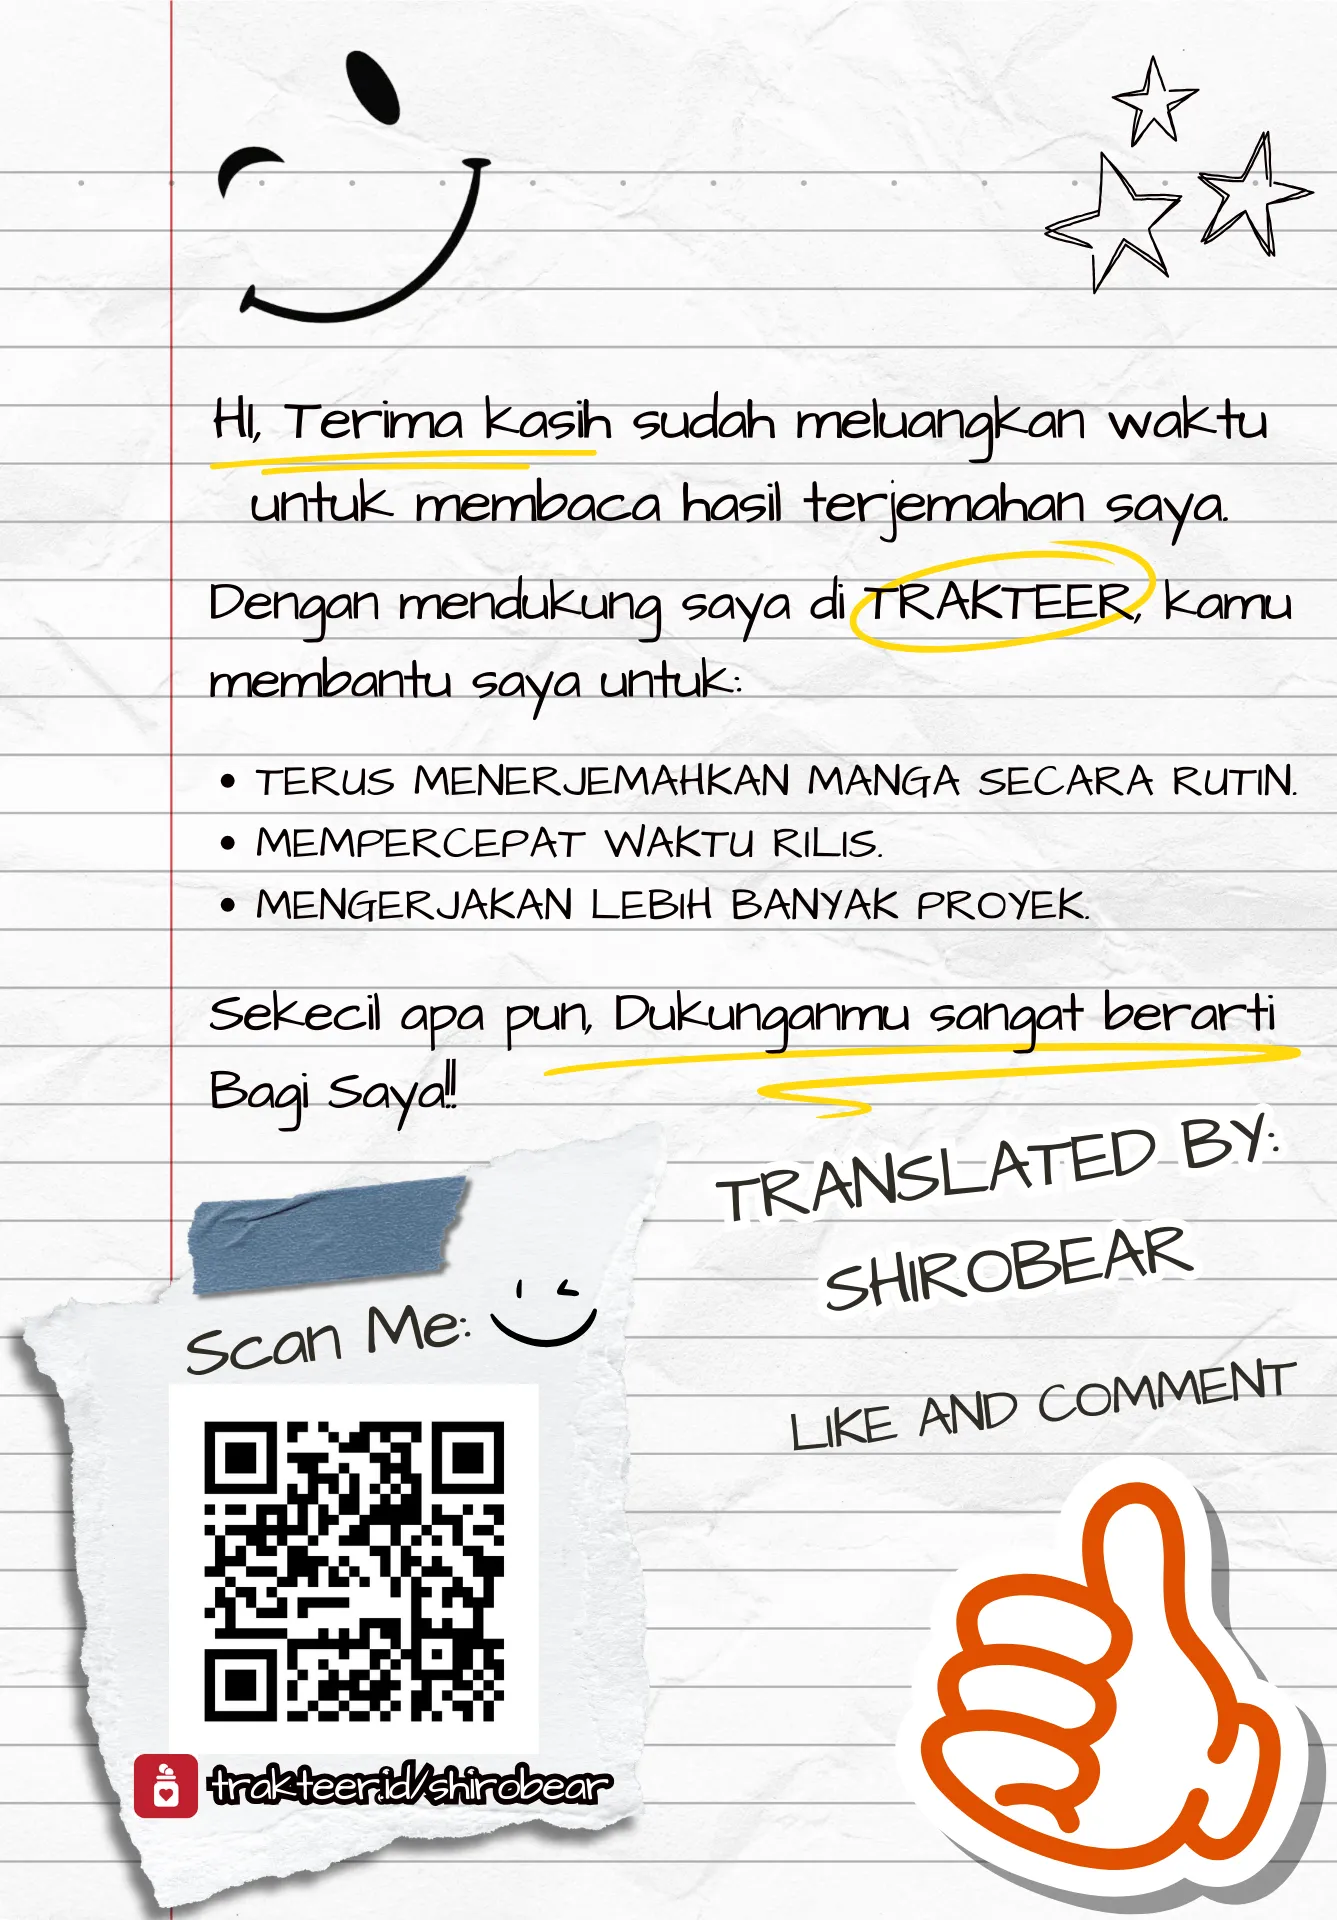 HI, Terima kasih sudah meluangkan waktu
untuk membaca hasil terjemahan saya.
Dengan mendukung saya di TRAKTEER, kamu
membantu saya untuk:
• TERUS MENERJEMAHKAN MANGA SECARA RUTIN.
• MEMPERCEPAT WAKTU RILIS.
• MENGERJAKAN LEBIH BANYAK PROYEK.
Sekecil apa pun, Dukunganmu sangat berarti
Bagi Saya!!
TRANSLATED BY:
SHIROBEAR
Scan Me:
LIKE AND COMMENT
trakteer.id/shirobear